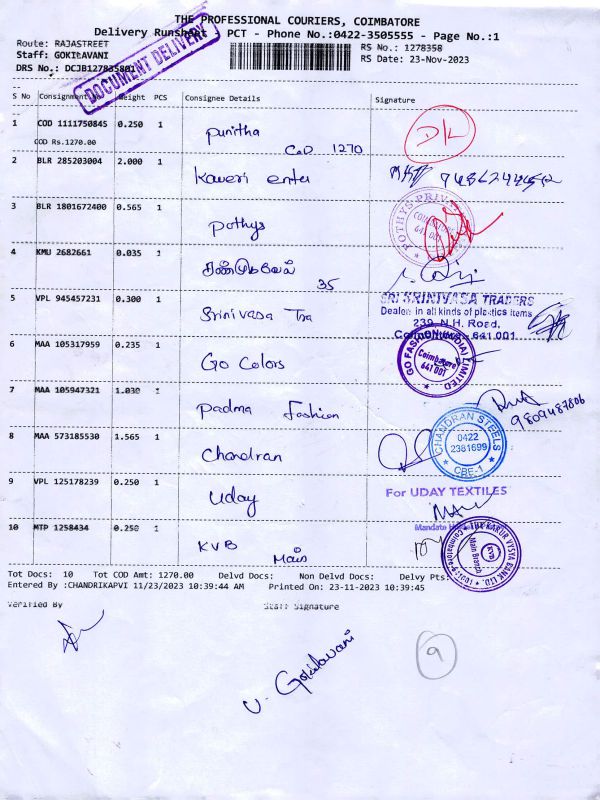 THE PROFESSIONAL COURIERS, COIMBATORE
Delivery Runsheet - PCT - Phone No.:0422-3505555 - Page No.:1
Route: RAJASTREET
RS No.: 1278358
Staff: GOKILAVANI
RS Date: 23-Nov-2023
DRS No.: DCJB127835801
DOCUMENT DELIVERY
S No Consignment No Weight PCS Consignee Details Signature
1 COD 1111750845 0.250 1 Punitha
COD Rs.1270.00 COD 1270
2 BLR 285203004 2.000 1 Kaveri enter
3 BLR 1801672400 0.565 1 Pothys
POTHYS PRIVATE
COIMBATORE
641 001
4 KMU 2682661 0.035 1 கண்ணுவேல்
35
5 VPL 945457231 0.300 1 Srinivasa Tra
SRI SRINIVASA TRADERS
Dealer in all kinds of plastics items
239, N.H. Road,
Coimbatore - 641 001
6 MAA 105317959 0.235 1 Go Colors
GO FASHION (INDIA) LIMITED
Coimbatore
641 001
7 MAA 105947321 1.030 1 Padma fashion
9809487806
8 MAA 573185530 1.565 1 Chandran
CHANDRAN STEELS
0422
2381699
CBE-1
9 VPL 125178239 0.250 1 Uday
For UDAY TEXTILES
10 MTP 1258434 0.250 1 KVB
Main
THE KARUR VYSYA BANK LTD.
KVB
Main Branch
Coimbatore-641001
Tot Docs: 10 Tot COD Amt: 1270.00 Delvd Docs: Non Delvd Docs: Delvy Pts:
Entered By :CHANDRIKAPVI 11/23/2023 10:39:44 AM Printed On: 23-11-2023 10:39:45
Verified By Staff Signature
V. Gokilavani
9